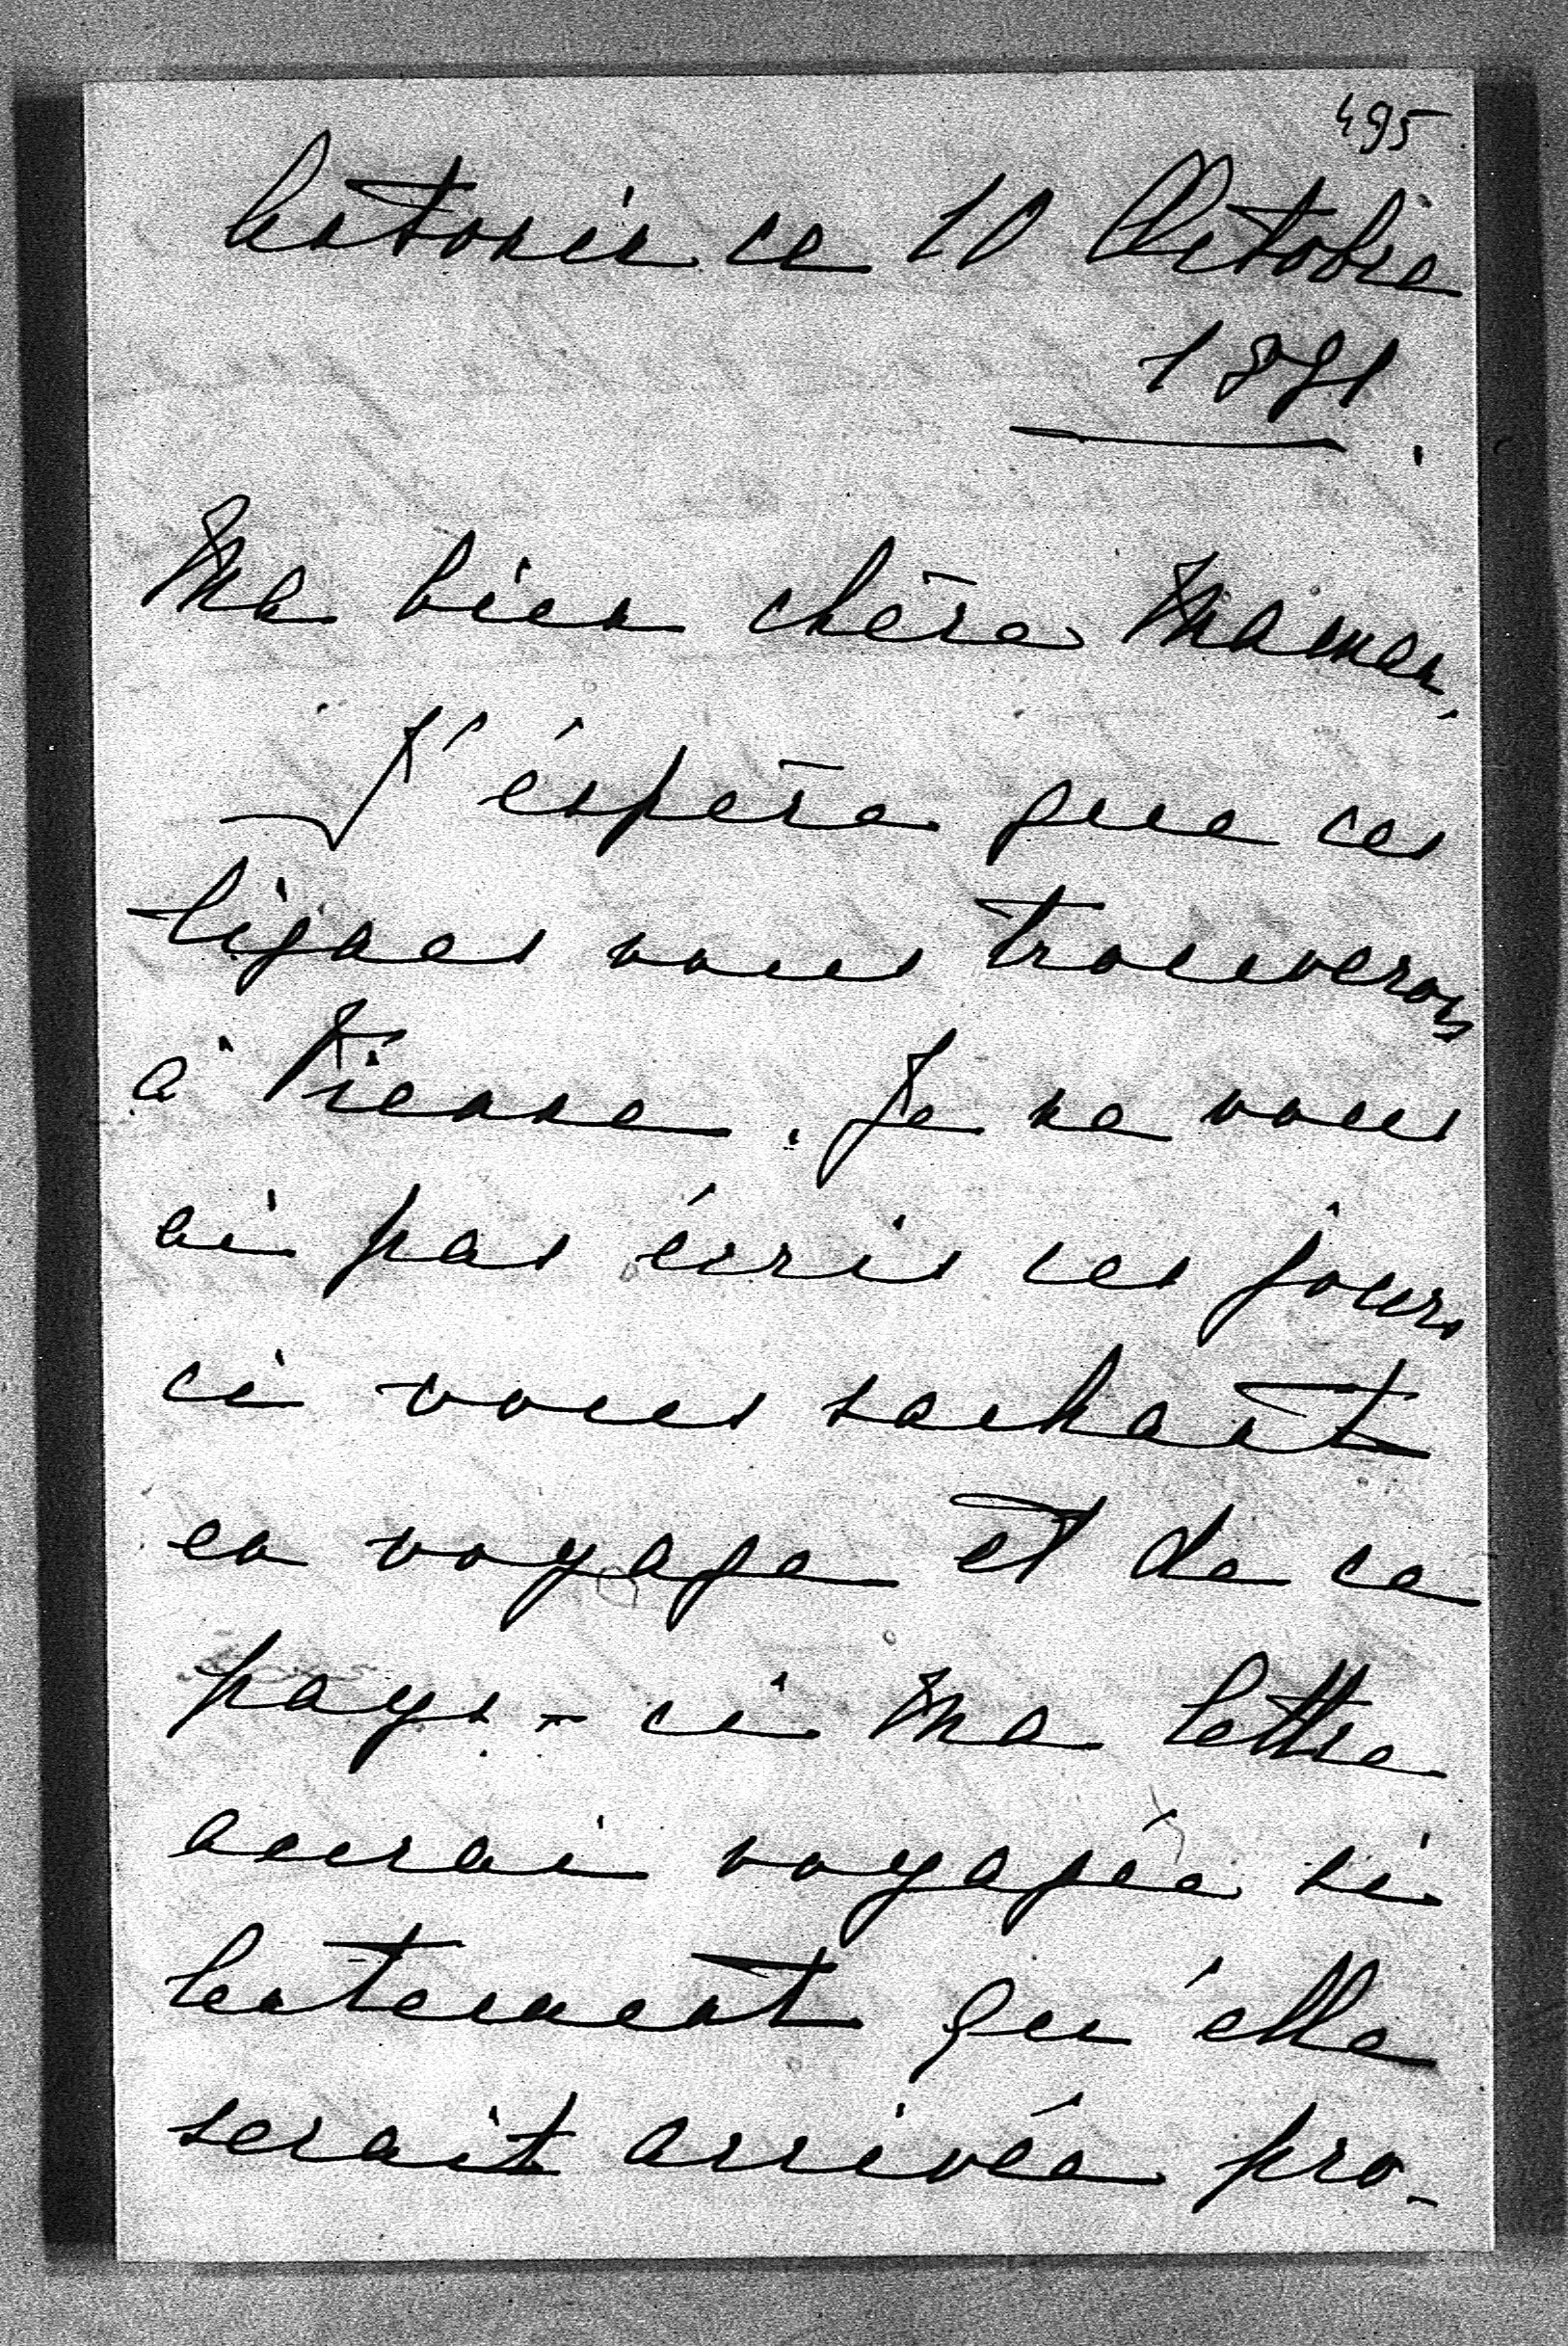 495
Antonin ce 10 Octobre
1891
Ma bien chère Maman,
J'éspère que ces
lignes vous trouverons
à Vienne. Je ne vous
ai pas écris ces jours
ci vous sachant
en voyage et de ce
pays-ci ma lettre
aurai voyagée si
lentement qu'elle
serait arrivée pro-